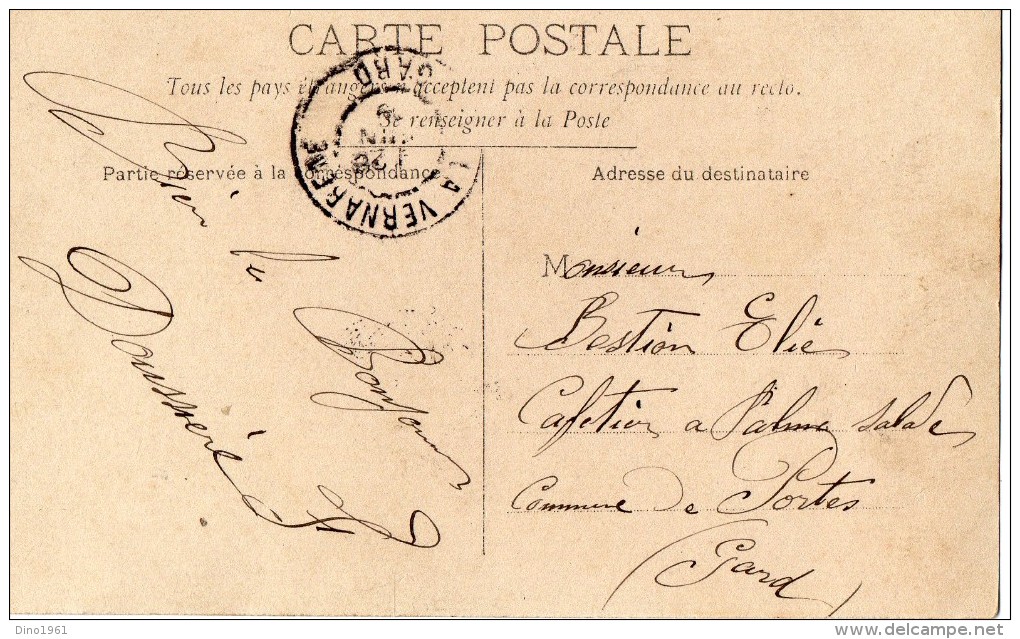 CARTE POSTALE
Tous les pays étrangers n'acceptent pas la correspondance au recto.
Se renseigner à la Poste
Partie réservée à la correspondance
Adresse du destinataire
LA VERNAREDE
GARD
JUIN
Bien le
Bonjour
Monsieur
Bestion Elie
Cafetier a Palme salade
Commune de Portes
(Gard)
Dino1961
delcampe.net